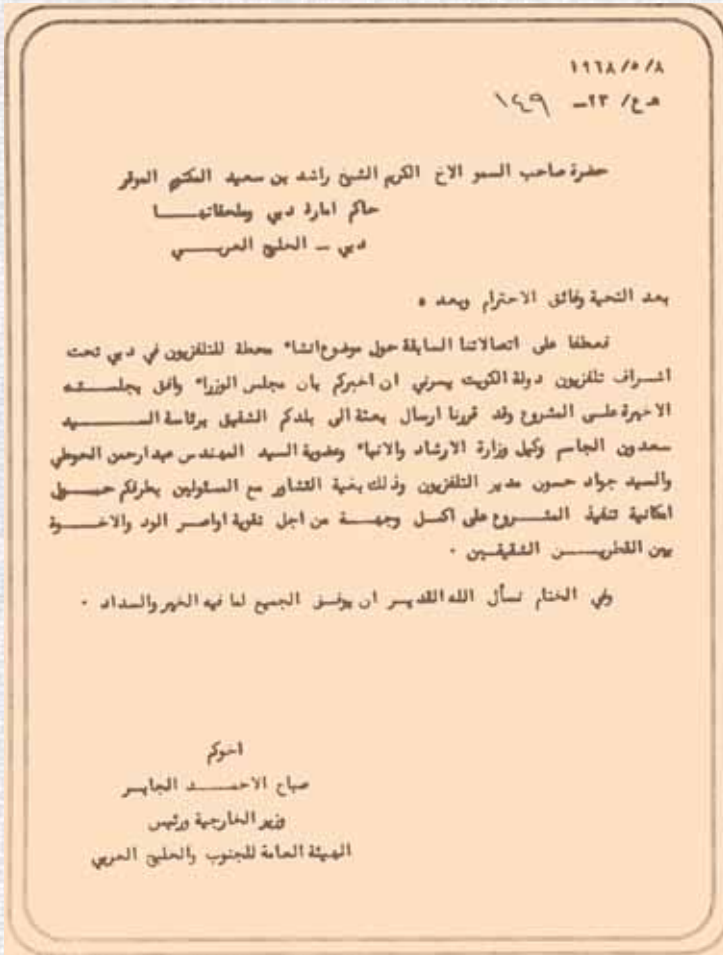 ١٩٦٨/٥/٨
هـ ع/ ٢٣ــ ١٤٩
حضرة صاحب السمو الاخ الكريم الشيخ راشد بن سعيد المكتوم الموقر
حاكم امارة دبي وملحقاتها
دبي ــ الخليج العربي
بعد التحية وفائق الاحترام وبعد ،
فعطفا على اتصالاتنا السابقة حول موضوع انشاء محطة للتلفزيون في دبي تحت
اشراف تلفزيون دولة الكويت يسرني ان اخبركم بان مجلس الوزراء وافق بجلسته
الاخيرة على المشروع وقد قررنا ارسال بعثة الى بلدكم الشقيق برئاسة السيد
سعدون الجاسم وكيل وزارة الارشاد والانباء وعضوية السيد المهندس عبدارحمن الحوطي
والسيد جواد حسون مدير التلفزيون وذلك بغية التشاور مع المسئولين بطرفكم حول
امكانية تنفيذ المشروع على اكمل وجهة من اجل تقوية اواصر الود والاخوة
بين القطرين الشقيقين .
وفي الختام نسأل الله القدير ان يوفق الجميع لما فيه الخير والسداد .
اخوكم
صباح الاحمد الجابر
وزير الخارجية ورئيس
الهيئة العامة للجنوب والخليج العربي